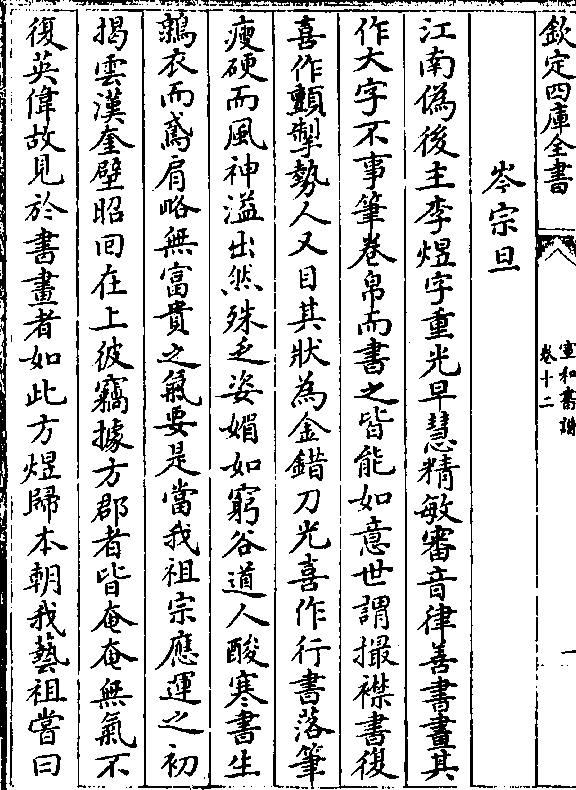 欽定四庫全書
宣和書譜
卷十二
一
岑宗旦
江南偽後主李煜字重光早慧精敏審音律善書畫其
作大字不事筆卷帛而書之皆能如意世謂撮襟書復
喜作顫掣勢人又目其狀為金錯刀光喜作行書落筆
瘦硬而風神溢出然殊乏姿媚如窮谷道人酸寒書生
鶉衣而鳶肩略無富貴之氣要是當我祖宗應運之初
揭雲漢奎壁昭回在上彼竊據方郡者皆奄奄無氣不
復英偉故見於書畫者如此方煜歸本朝我藝祖嘗曰